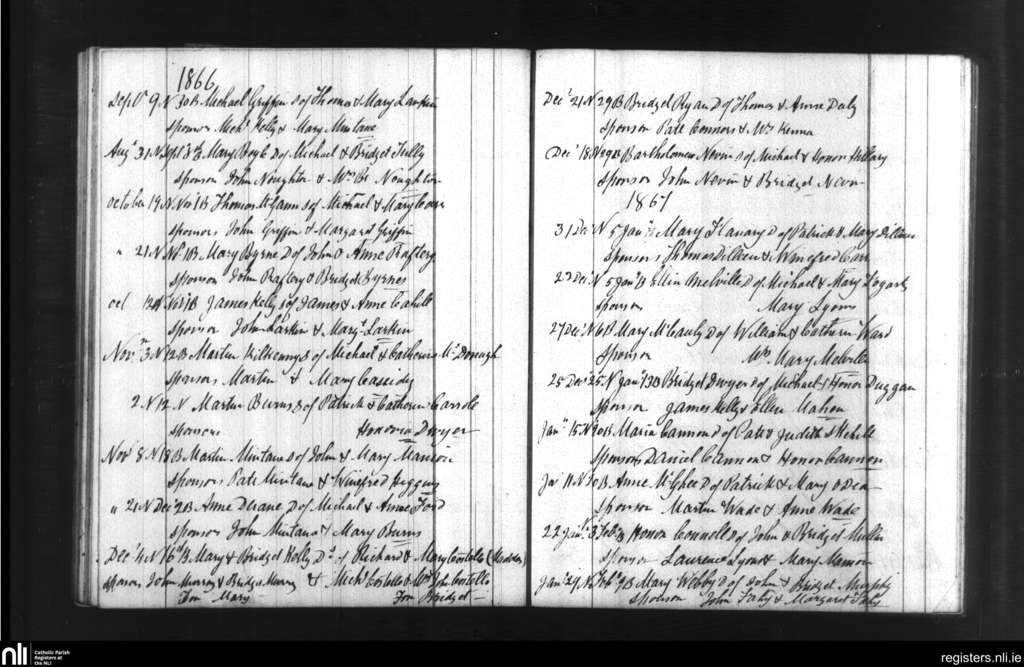 1866
Sept 9 N 30 B Michael Griffin S of Thomas & Mary Larkin
sponsors Mich Kelly & Mary Mintane
Aug 31 N B Mary D of Michael & Bridget Tully
sponsor John Noughton & Mrs Noughton
October 19 N Nov 1 B Thomas McGann S of Michael & Mary
sponsors John Griffin & Margaret Griffin
" 21 N 1 B Mary Byrne D of John & Anne Raftery
sponsor John Raftery & Bridget Byrnes
Oct B James Kelly S of James & Anne Cahill
sponsor John Larkin & Mary Larkin
Nov 3 N 12 B Martin Kilkenny S of Michael & Catherine McDonagh
sponsors Martin & Mary Cassidy
2 N 12 N Martin Burns S of Patrick & Catherine Carrole
sponsors Honoria Dwyer
Nov 8 N 18 B Martin S of John & Mary Mannion
sponsors Pate & Winefred Higgins
" 21 N Dec 2 B Anne Deane D of Michael & Anne Ford
sponsors John & Mary Burns
Dec 4 N B Mary & Bridget Kelly Ds of Richard & Mary Costello (Madden)
sponsors John Murry & Bridget Murry & Mich Costello & John Costello
For Mary For Bridget
Dec 21 N 29 B Bridget Ryan D of Thomas & Anne Daly
sponsor Patt Connors & Mrs Kenna
Dec 18 N 29 B Bartholomew Nevin S of Michael & Honor Hillary
sponsor John Nevin & Bridget Nevin
1867
31 Dec N 5 Jan Mary Flanary D of Patrick & Mary Dillon
sponsors Thomas Dillon & Winefred Carr
23 Dec N 5 Jan B Ellin Melville D of Michael & Mary Fogarty
sponsor Mary Lyons
27 Dec N 6 B Mary McCauly D of William & Catherin Ward
sponsor Mrs Mary Melville
25 Dec 25 N Jan 13 B Bridget Dwyer D of Michael & Honor Duggan
sponsor James Kelly & Ellen Mahon
Jan 15 N 20 B Maria Cannon D of Pate & Judith Skehill
sponsors Daniel Cannon & Honor Cannon
Jan 11 N B Anne McGhee D of Patrick & Mary O Dea
sponsor Martin Wade & Anne Wade
22 Jan 3 Feb B Honor Connell D of John & Bridget Mullin
sponsor Laurence Lyons & Mary Mannion
Jan 29 N Feb B Mary Webby D of John & Bridget Murphy
sponsor John Fahy & Margaret Fahy
nli Catholic Parish
Registers at
the NLI
registers.nli.ie